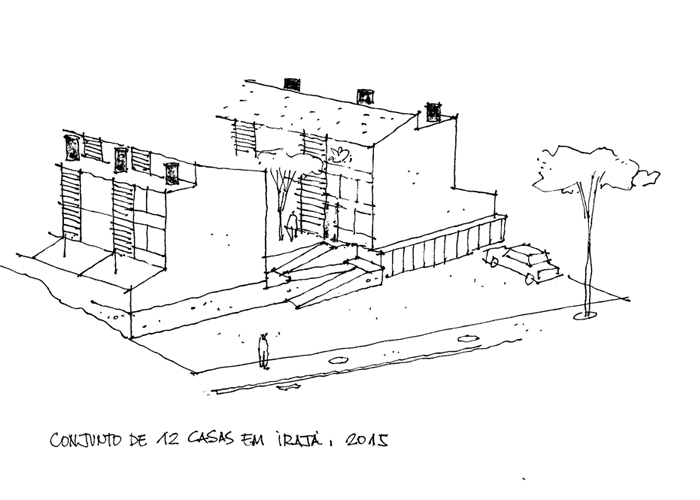 CONJUNTO DE 12 CASAS EM IRAJÁ, 2015